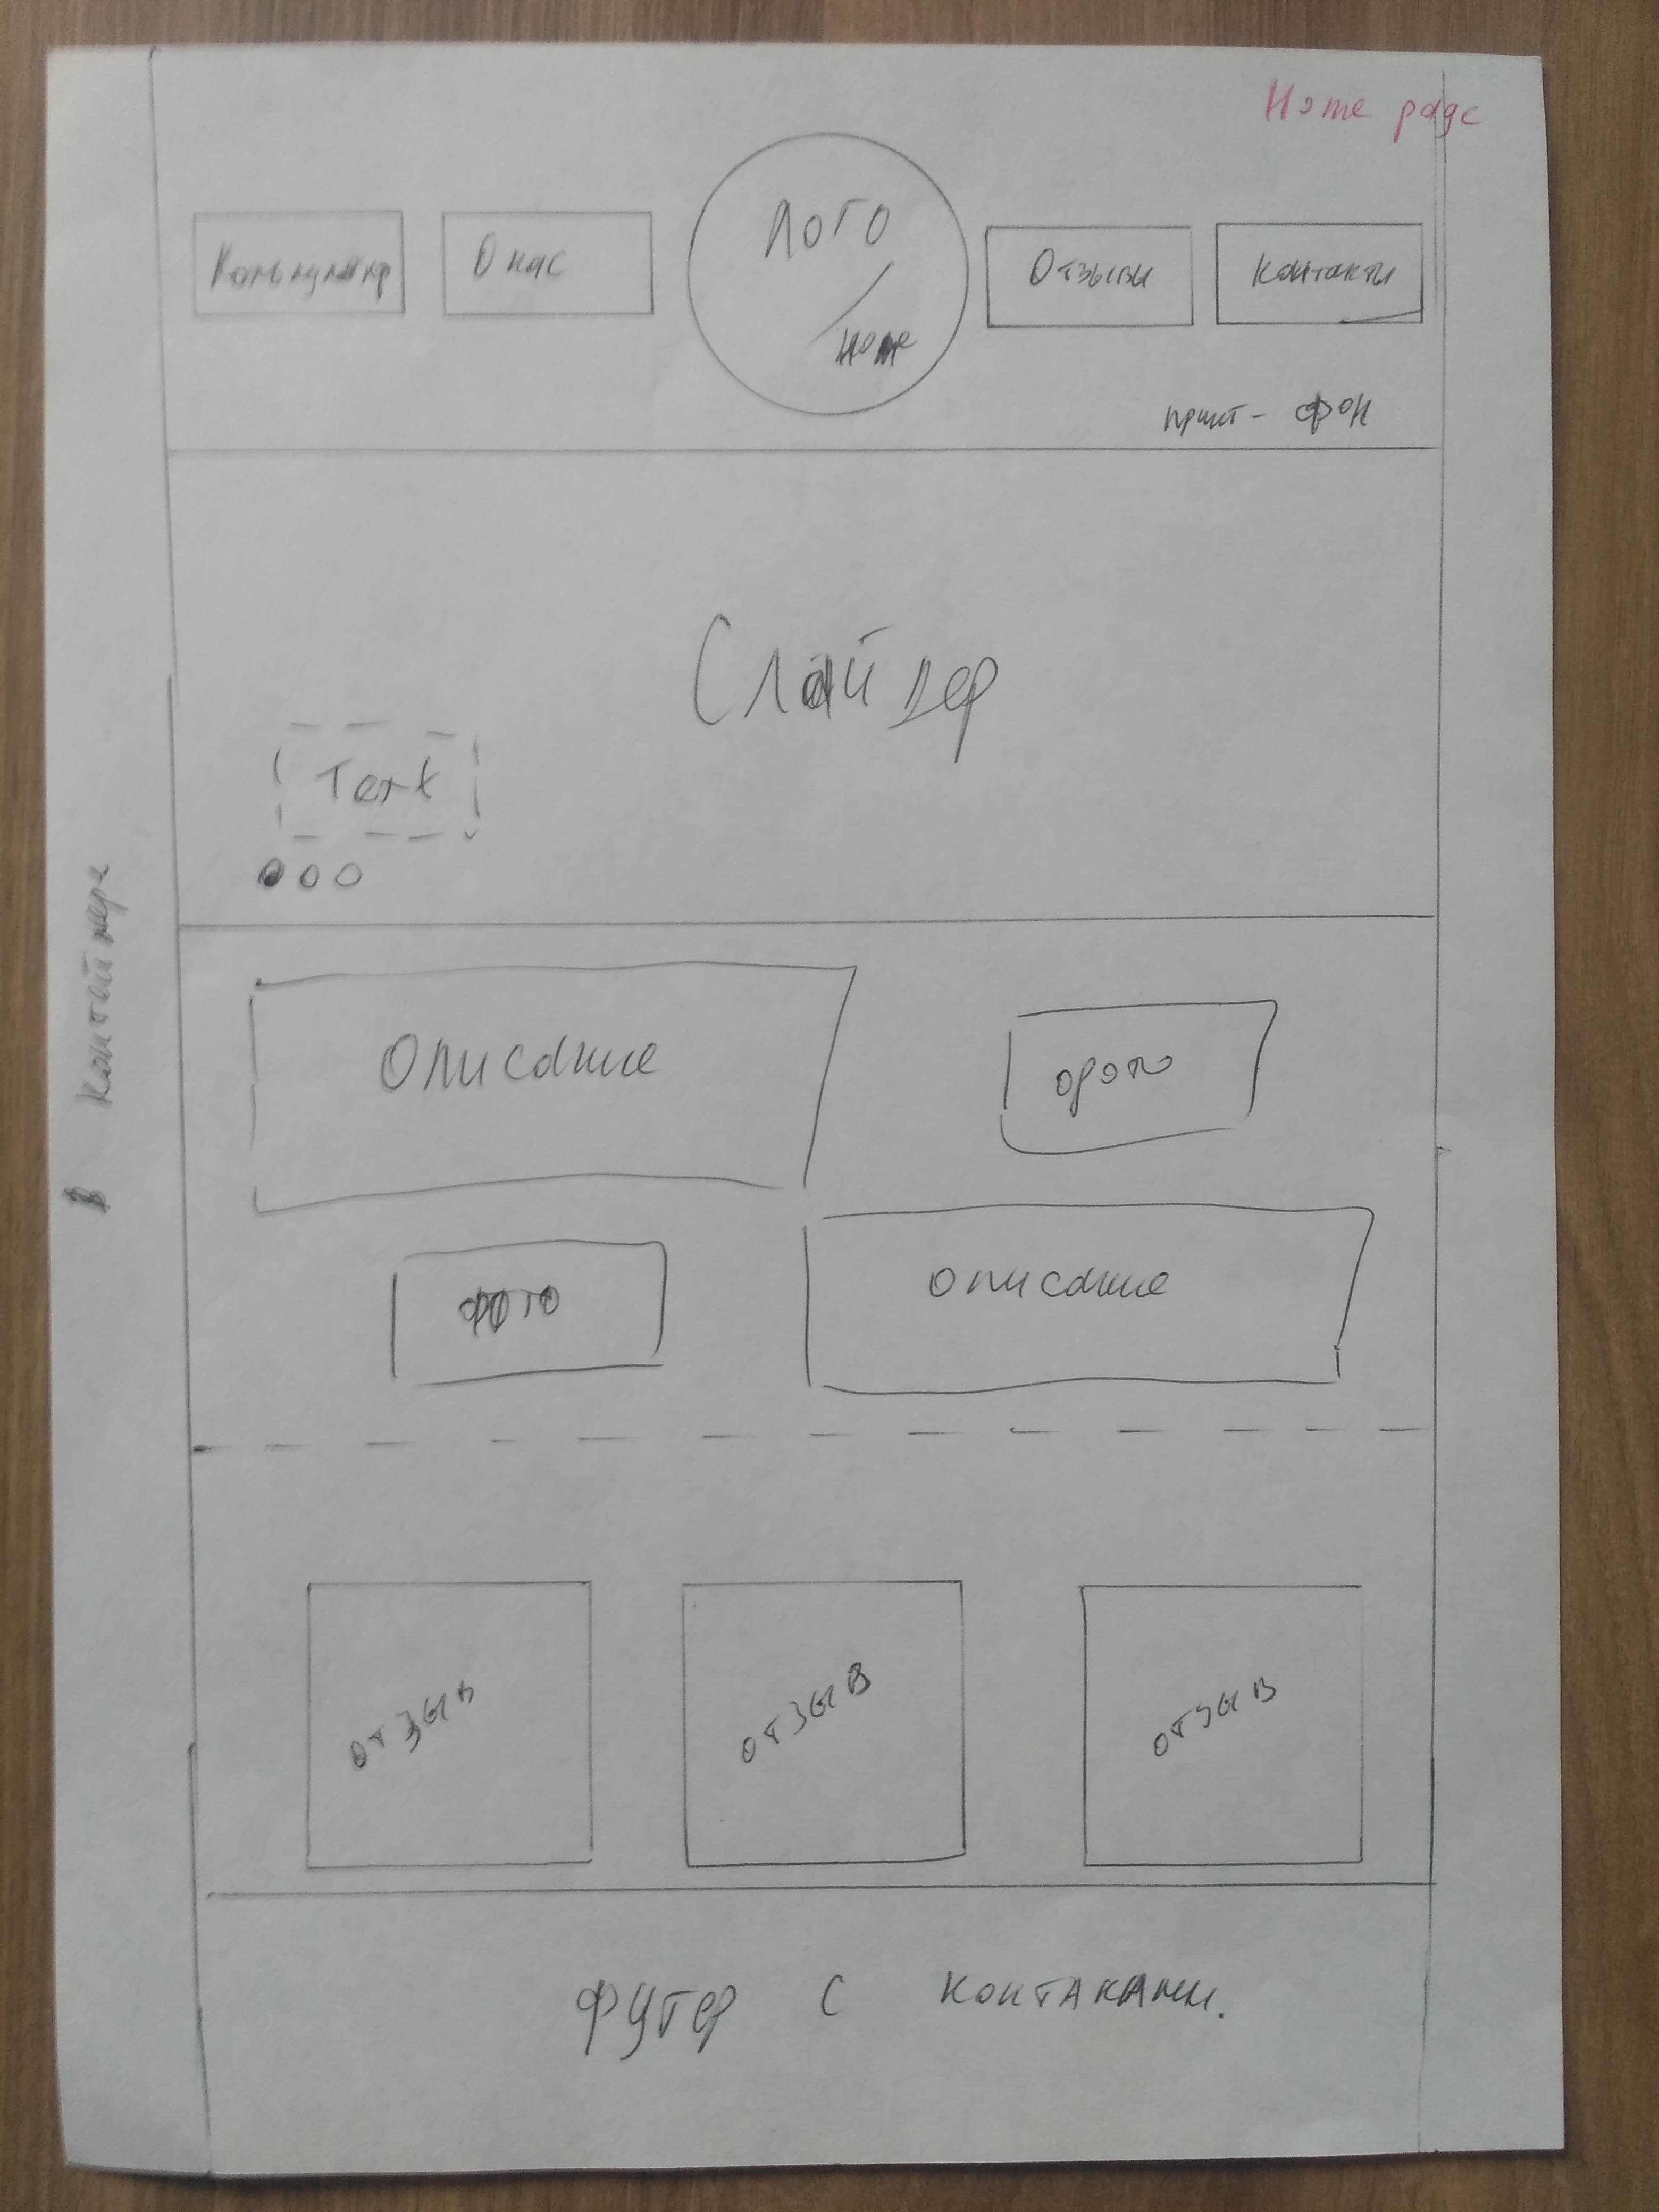 Home page
Калькулятор
О нас
Лого
/
Home
Отзывы
Контакты
принт - фон
Слайдер
Text
В контейнере
Описание
фото
фото
описание
отзыв
отзыв
отзыв
футер с контаками.